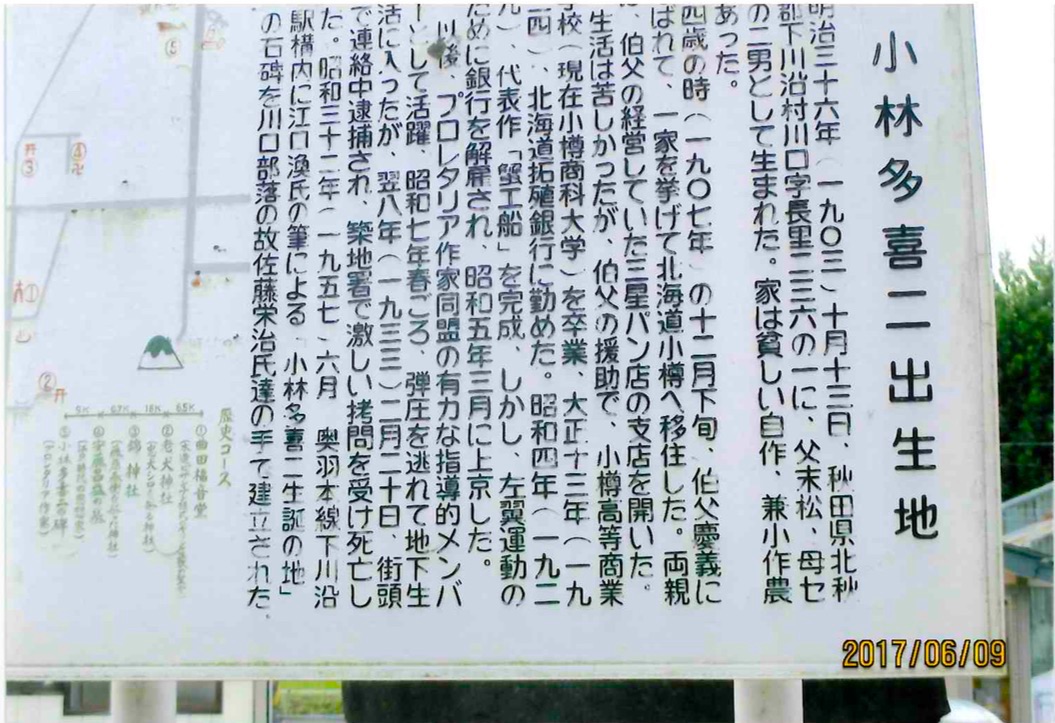 小林多喜二出生地
明治三十六年(一九〇三)十月十三日、秋田県北秋
郡下川沿村川口字長里二三六の一に、父末松、母セ
の二男として生まれた。家は貧しい自作、兼小作農
あった。
四歳の時(一九〇七年)の十二月下旬、伯父慶義に
ばれて、一家を挙げて北海道小樽へ移住した。両親
、伯父の経営していた三星パン店の支店を開いた。
生活は苦しかったが、伯父の援助で、小樽高等商業
学校(現在小樽商科大学)を卒業、大正十三年(一九
二四)、北海道拓殖銀行に勤めた。昭和四年(一九二
九)、代表作「蟹工船」を完成、しかし、左翼運動の
ために銀行を解雇され、昭和五年三月に上京した。
以後、プロレタリア作家同盟の有力な指導的メンバ
ーとして活躍、昭和七年春ごろ、弾圧を逃れて地下生
活に入ったが、翌八年(一九三三)二月二十日、街頭
で連絡中逮捕され、築地署で激しい拷問を受け死亡し
た。昭和三十二年(一九五七)六月 奥羽本線下川沿
駅構内に江口渙氏の筆による「小林多喜二生誕の地」
の石碑を川口部落の故佐藤栄治氏達の手で建立された。
歴史コース
①曲田福音堂
②老犬神社
③錦神社
⑤小林多喜二碑
(プロレタリア作家)
⑤
④卍
③
①
②
2017/06/09